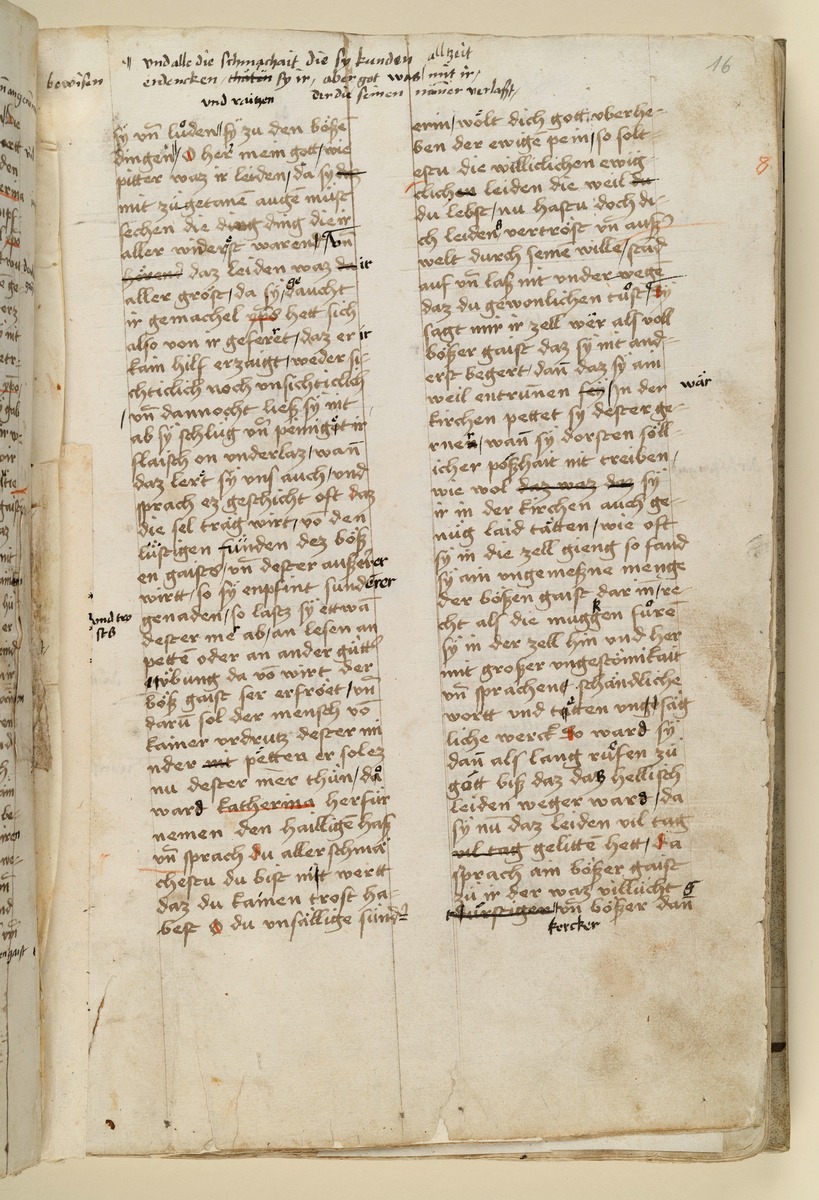 16
¶ und alle die schmachait die sÿ kunden all zeit
bewisen erdencken thäten sÿ ir, aber got was mit ir,
und raitzen der die seinen nimer verlasst,
sÿ vn̄ luͦden sÿ zu den böße
dingen / O her mein gott / wie
pitter waz ir leiden / da sÿ daz
mit zuͦgetanē augē müst
sechen die ding die ir
aller widerst waren / vn̄
hörend daz leiden waz da ir
aller gröst / da sÿ daucht
ir gemachel xp̄s hett sich
also von ir geferet / daz er ir
kain hilf erzaigt / weder si-
chticlich noch vnsichticlich
/ vn̄ dannocht ließ sÿ nit
ab sÿ schluͦg vn̄ peinigöt ir
flaisch on underlaz / wan̄
daz lert sÿ uns auch / und
sprach ez geschicht oft daz
die sel träg wirt / vō den
lüstigen sünden dez böß
en gaists / vn̄ dester außerer
wirtt / so sÿ enpfint sunderer
genaden / so lastz sÿ ettwā
und tro
stß
dester mer ab / an lesen an
petten oder an ander gütt
übung da vō wirt der
böß gaist ser erfröiet / vn̄
darū sol der mensch vō
kainer vrdrutz dester mi
nder mit petten er solez
nu dester mer thün / da
ward katherina herfür
nemen den hailligē haß
vn̄ sprach du aller schmä
chestu du bist nit wertt
daz du kainen trost ha-
best O du unsällige sünd-
erin / wölt dich gott vberhe-
ben der ewigē pein / so solt-
estu die williclichen ewig-
clichen leiden die weil du
du lebst / nu hastu doch di-
ch leidens vertröst vn̄ auß
welt durch seine wille / stand
auf vn̄ laß nit under wege
daz du gewonlichen tuͦst / Sÿ
sagt mir ir zell wer als voll
bößer gaist daz sÿ nit and-
erst begert / dan̄ daz sÿ ain
weil entrunnen seÿ / In der wär
kirchen pettet sÿ dester ge-
rner / wan̄ sÿ dorsten söll-
icher poßhait nit treiben /
wie wol daz waz daz sÿ
ir in der kirchen auch ge-
nuͦg laid tätten / wie oft
sÿ in die zell gieng so fand
sÿ ain ungemeßne menge
der bößen gaist dar in̄ / re-
cht als die muggen fuͦrē
sÿ in der zell hin und her
mit großer ungestömikait
vn̄ sprachent schandliche
wortt und tätten unsäg
liche werck So ward sÿ
dan̄ als lang ruͦfen zuͦ
gott biß daz daß hellisch
leiden weger ward / da
sÿ nu daz leiden vil tag
vil tag gelitte hett / da
sprach ain bößer gaist
zuͦ ir der waz villücht
dürstigen vn̄ bößer dan̄
kercker